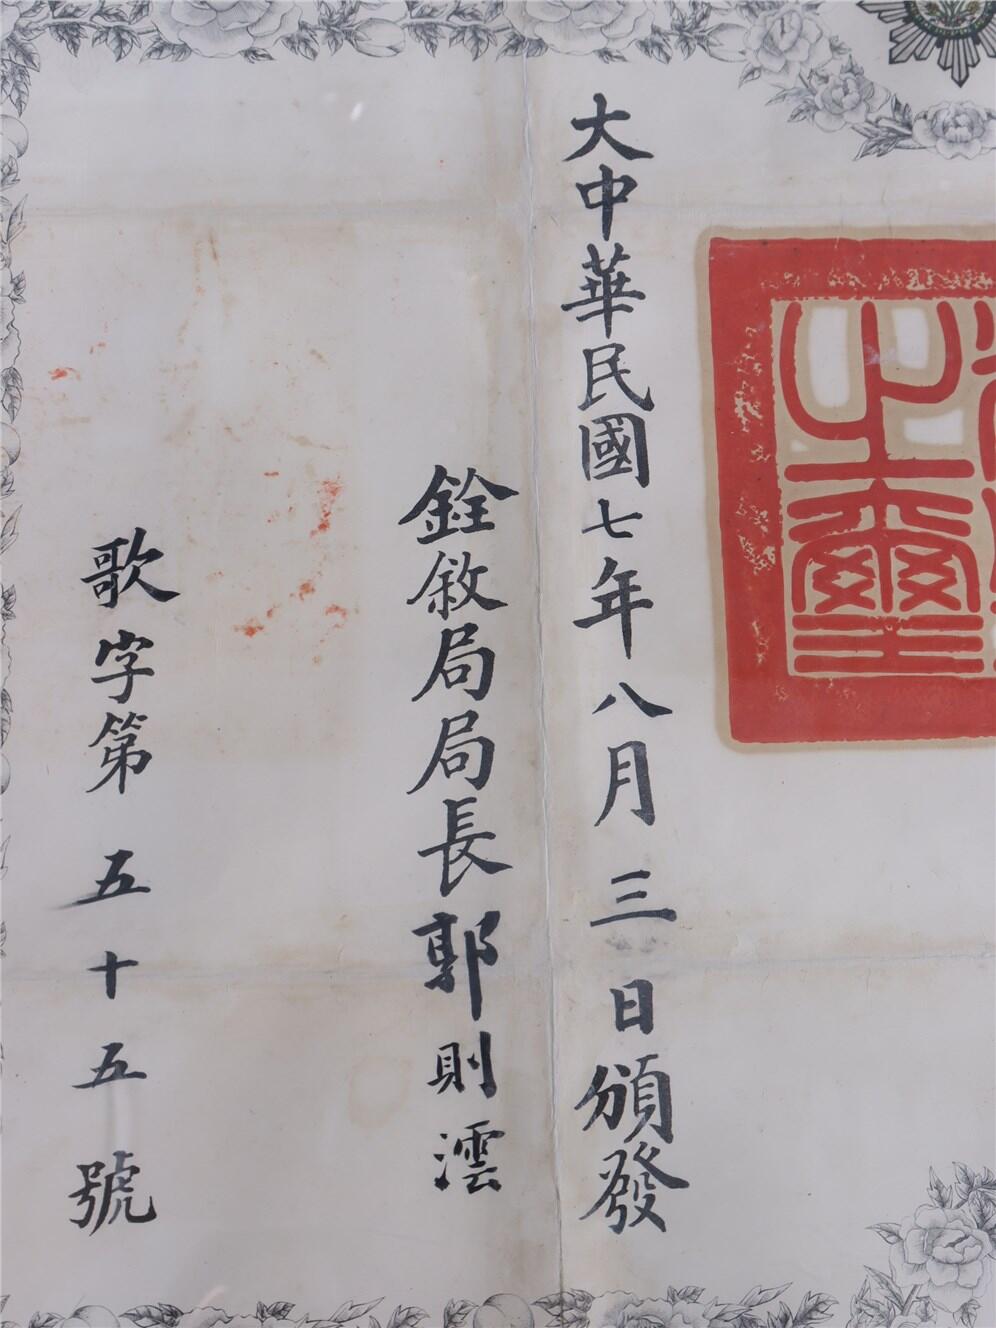 大中華民國七年八月三日頒發
銓敘局局長郭則澐
歌字第五十五號
之璽